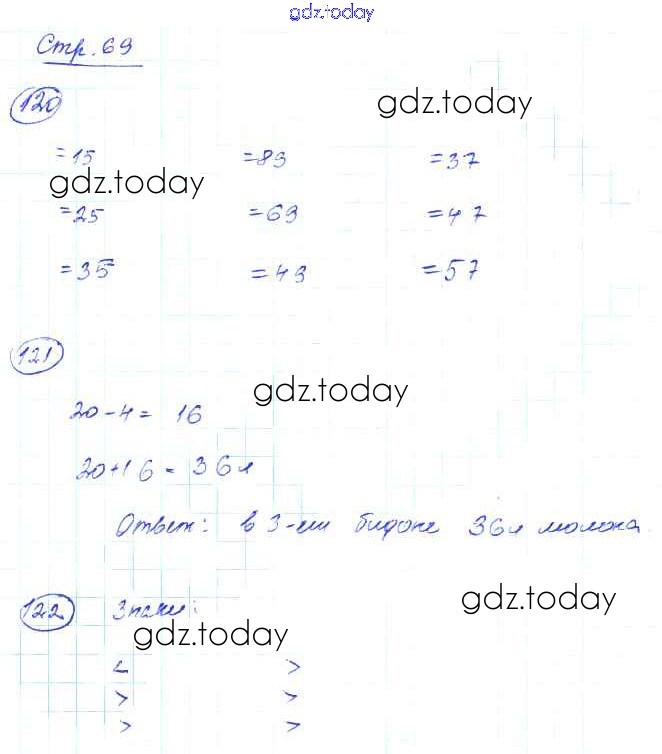 gdz.today
Стр. 69
120
gdz.today
=15 =83 =37
gdz.today
=25 =63 =47
=35 =43 =57
121
gdz.today
20-4= 16
20+16 = 36л
Ответ: в 3-ем бидоне 36л молока
122 Знаки:
gdz.today
gdz.today
< >
> >
> >